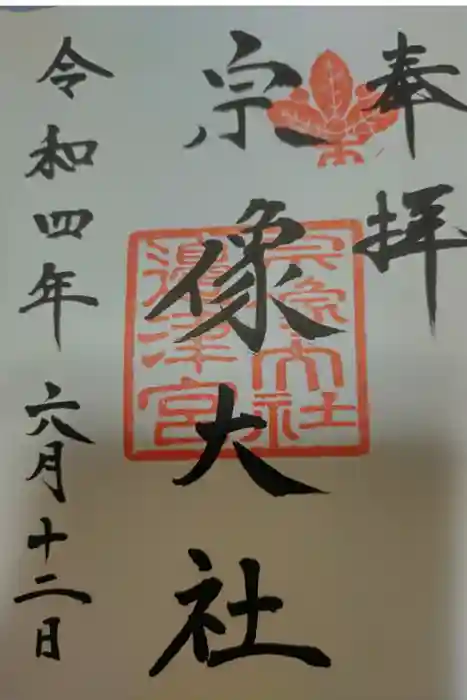 奉拝
宗像大社
宗像大社
邊津宮
令和四年六月十二日